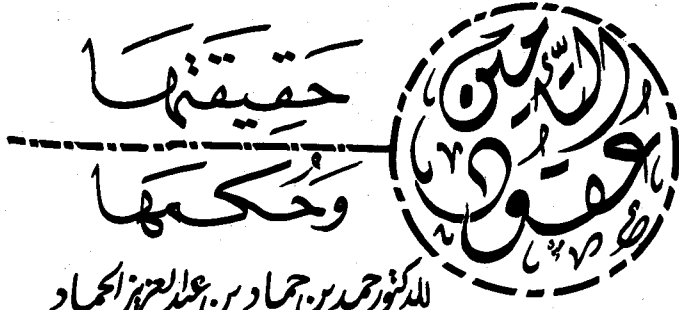 عُقُود التَّأمين
حَقِيقَتهَا
وَحُكمهَا
للدكتور حمد بن حماد بن عبد العزيز الحماد